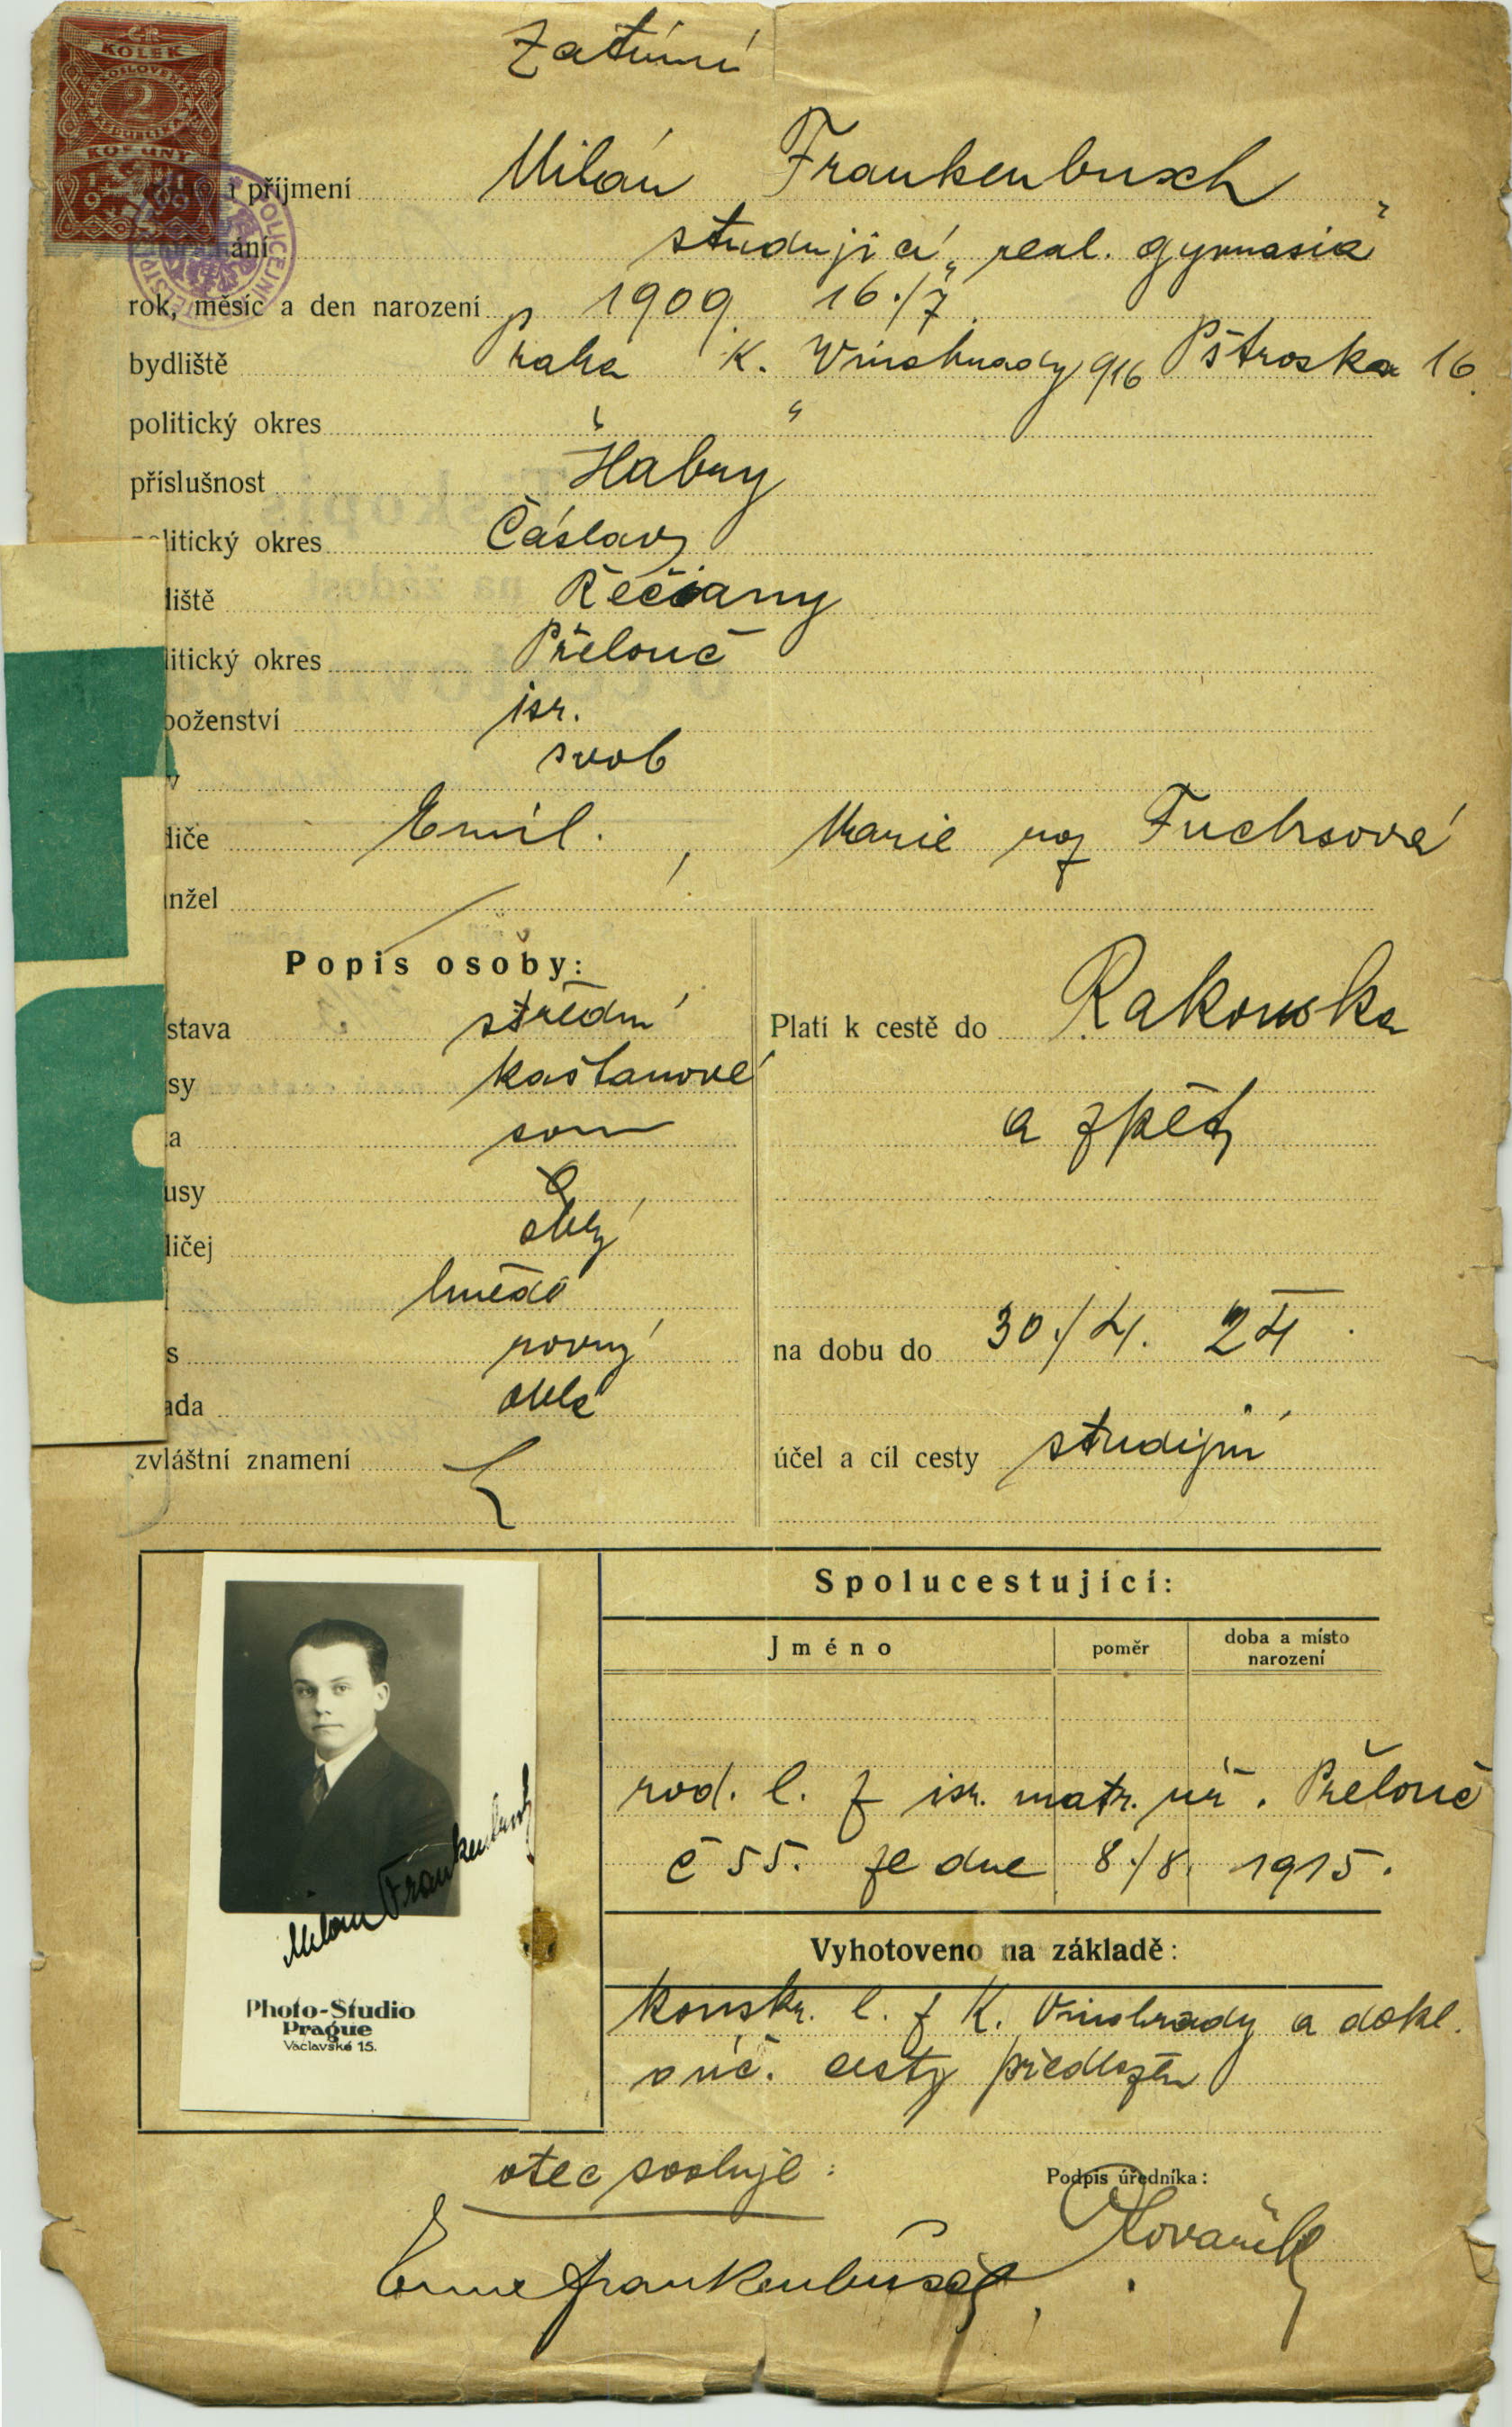 Zatímní
ČR
KOLEK
ČESKOSLOVENSKÁ
2
REPUBLIKA
KORUNY
příjmení Milán Frankenbusch
studující real. gymnasia
POLICEJNÍ
rok, měsíc a den narození 1909. 16./7.
bydliště Praha K. Vinohrady 916 Pštroska 16.
politický okres " "
příslušnost Habry
litický okres Čáslav
liště Řečany
litický okres Přelouč
boženství isr.
svob
diče Emil. , Marie roz Fuchsová
nžel
Popis osoby:
stava střední
sy kaštanové
a
usy
ličej oblý
hnědé
s rovný
ada oblá
zvláštní znamení
Platí k cestě do Rakouska
a zpět
na dobu do 30./4. 24.
účel a cíl cesty studijní
Spolucestující:
Jméno poměr doba a místo narození
rod. l. z isr. matr. úř. Přelouč
č 55. ze dne 8./8. 1915.
Vyhotoveno na základě:
konskr. l. z K. Vinohrady a dokl.
o úč. cesty předložen
Milan Frankenbusch
Photo-Studio
Prague
Václavské 15.
otec svoluje:
Podpis úředníka:
Kovařík
Frankenbusch